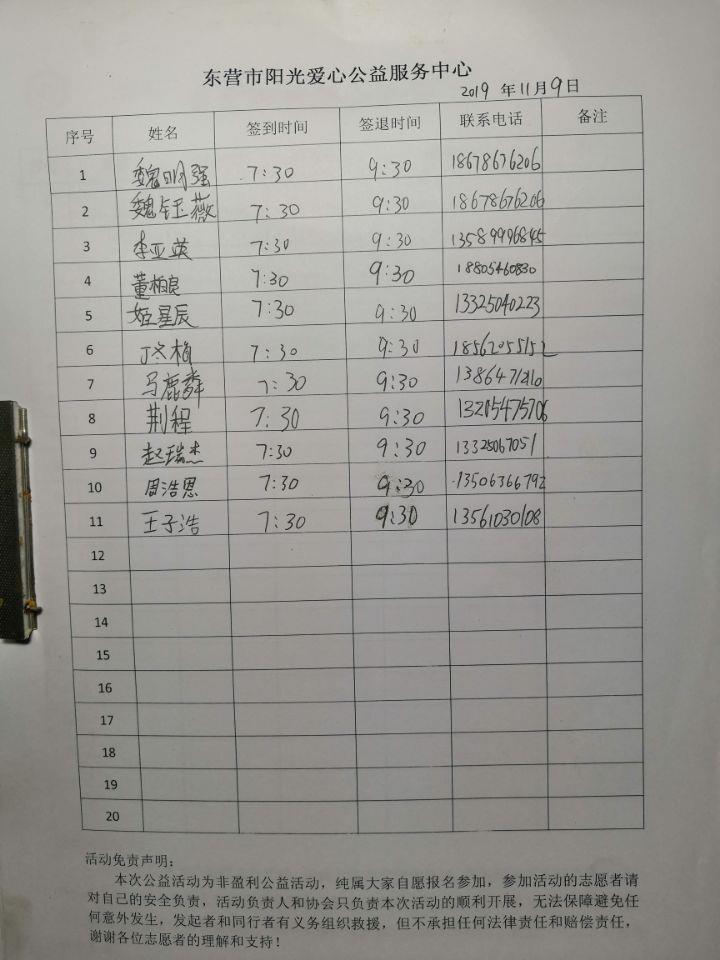 东营市阳光爱心公益服务中心
2019 年11月9日
序号 姓名 签到时间 签退时间 联系电话 备注
1 魏明强 7:30 9:30 18678676206
2 魏钰薇 7:30 9:30 18678676206
3 李亚英 7:30 9:30 13589996845
4 董柏良 7:30 9:30 18805460830
5 姬星辰 7:30 9:30 13325040223
6 丁冬梅 7:30 9:30 18562055152
7 马鹿粦 7:30 9:30 1386471210
8 荆程 7:30 9:30 13205475706
9 赵瑞杰 7:30 9:30 13325067051
10 周浩恩 7:30 9:30 13506366792
11 王子浩 7:30 9:30 13561030108
12
13
14
15
16
17
18
19
20
活动免责声明：
本次公益活动为非盈利公益活动，纯属大家自愿报名参加，参加活动的志愿者请
对自己的安全负责，活动负责人和协会只负责本次活动的顺利开展，无法保障避免任
何意外发生，发起者和同行者有义务组织救援，但不承担任何法律责任和赔偿责任，
谢谢各位志愿者的理解和支持！